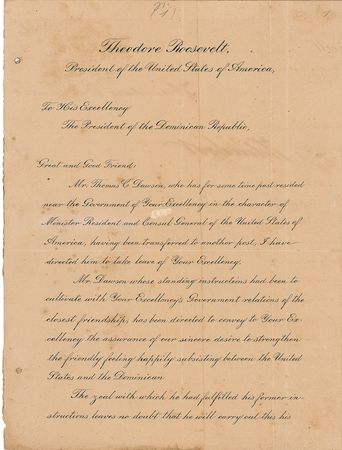 Theodore Roosevelt,
President of the United States of America,
To His Excellency
The President of the Dominican Republic,
Great and Good Friend:
Mr. Thomas C. Dawson, who has for some time past resided
near the Government of Your Excellency in the character of
Minister Resident and Consul General of the United States of
America, having been transferred to another post, I have
directed him to take leave of Your Excellency.
Mr. Dawson whose standing instructions had been to
cultivate with Your Excellency's Government relations of the
closest friendship, has been directed to convey to Your Ex-
cellency the assurance of our sincere desire to strengthen
the friendly feeling happily subsisting between the United
States and the Dominican
The zeal with which he had fulfilled his former in-
structions leaves no doubt that he will carry out this his